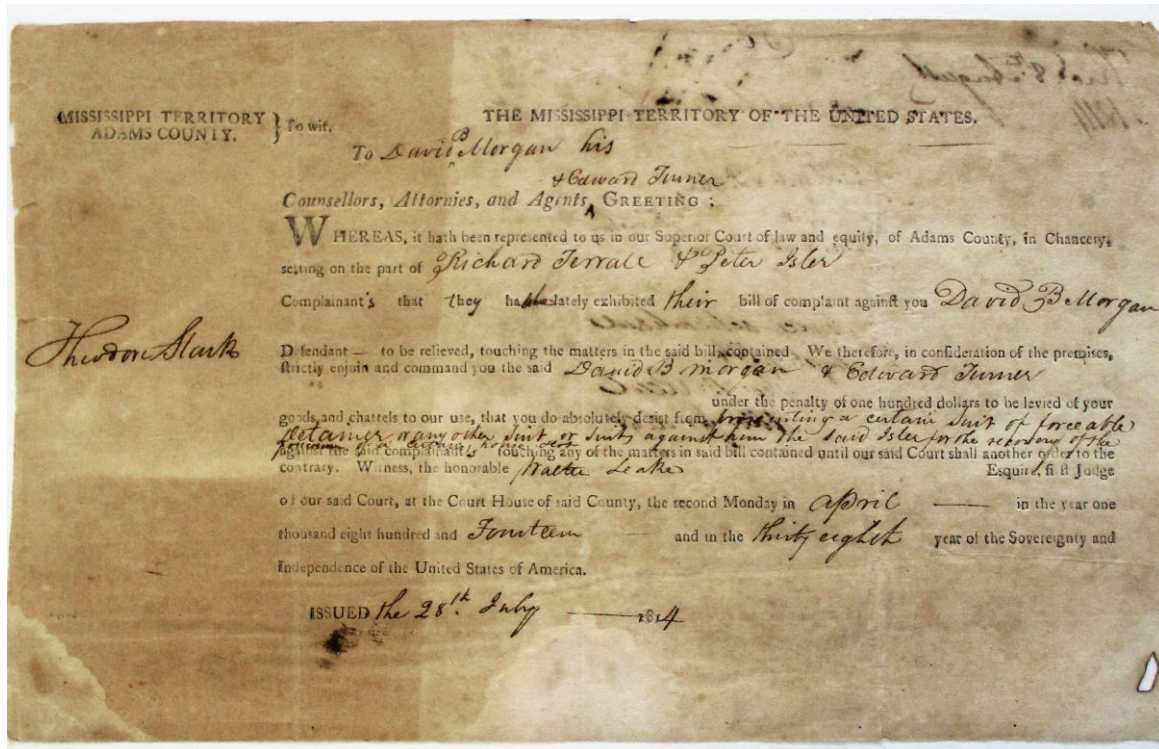 MISSISSIPPI TERRITORY } To wit.
ADAMS COUNTY.
THE MISSISSIPPI TERRITORY OF THE UNITED STATES.
To David B Morgan his
& Edward Turner
Counsellors, Attornies, and Agents ‸ GREETING :
WHEREAS, it hath been represented to us in our Superior Court of law and equity, of Adams County, in Chancery,
setting on the part of Richard Terrall & Peter Isler
Complainant's that they have lately exhibited their bill of complaint against you David B Morgan
Theodore Stark
Defendant — to be relieved, touching the matters in the said bill contained We therefore, in consideration of the premises,
strictly enjoin and command you the said David B morgan & Edward Turner
under the penalty of one hundred dollars to be levied of your
goods and chattels to our use, that you do absolutely desist from prosecuting a certain suit of forceable
detainer or any other suit or suits against him the said Isler for the recovery of the
possession of a certain house
against the said complainant's touching any of the matters in said bill contained until our said Court shall another order to the
contrary. Witness, the honorable Walter Leake Esquire, first Judge
of our said Court, at the Court House of said County, the second Monday in april — in the year one
thousand eight hundred and Fourteen and in the thirty eighth year of the Sovereignty and
Independence of the United States of America.
ISSUED the 28th July — 1814